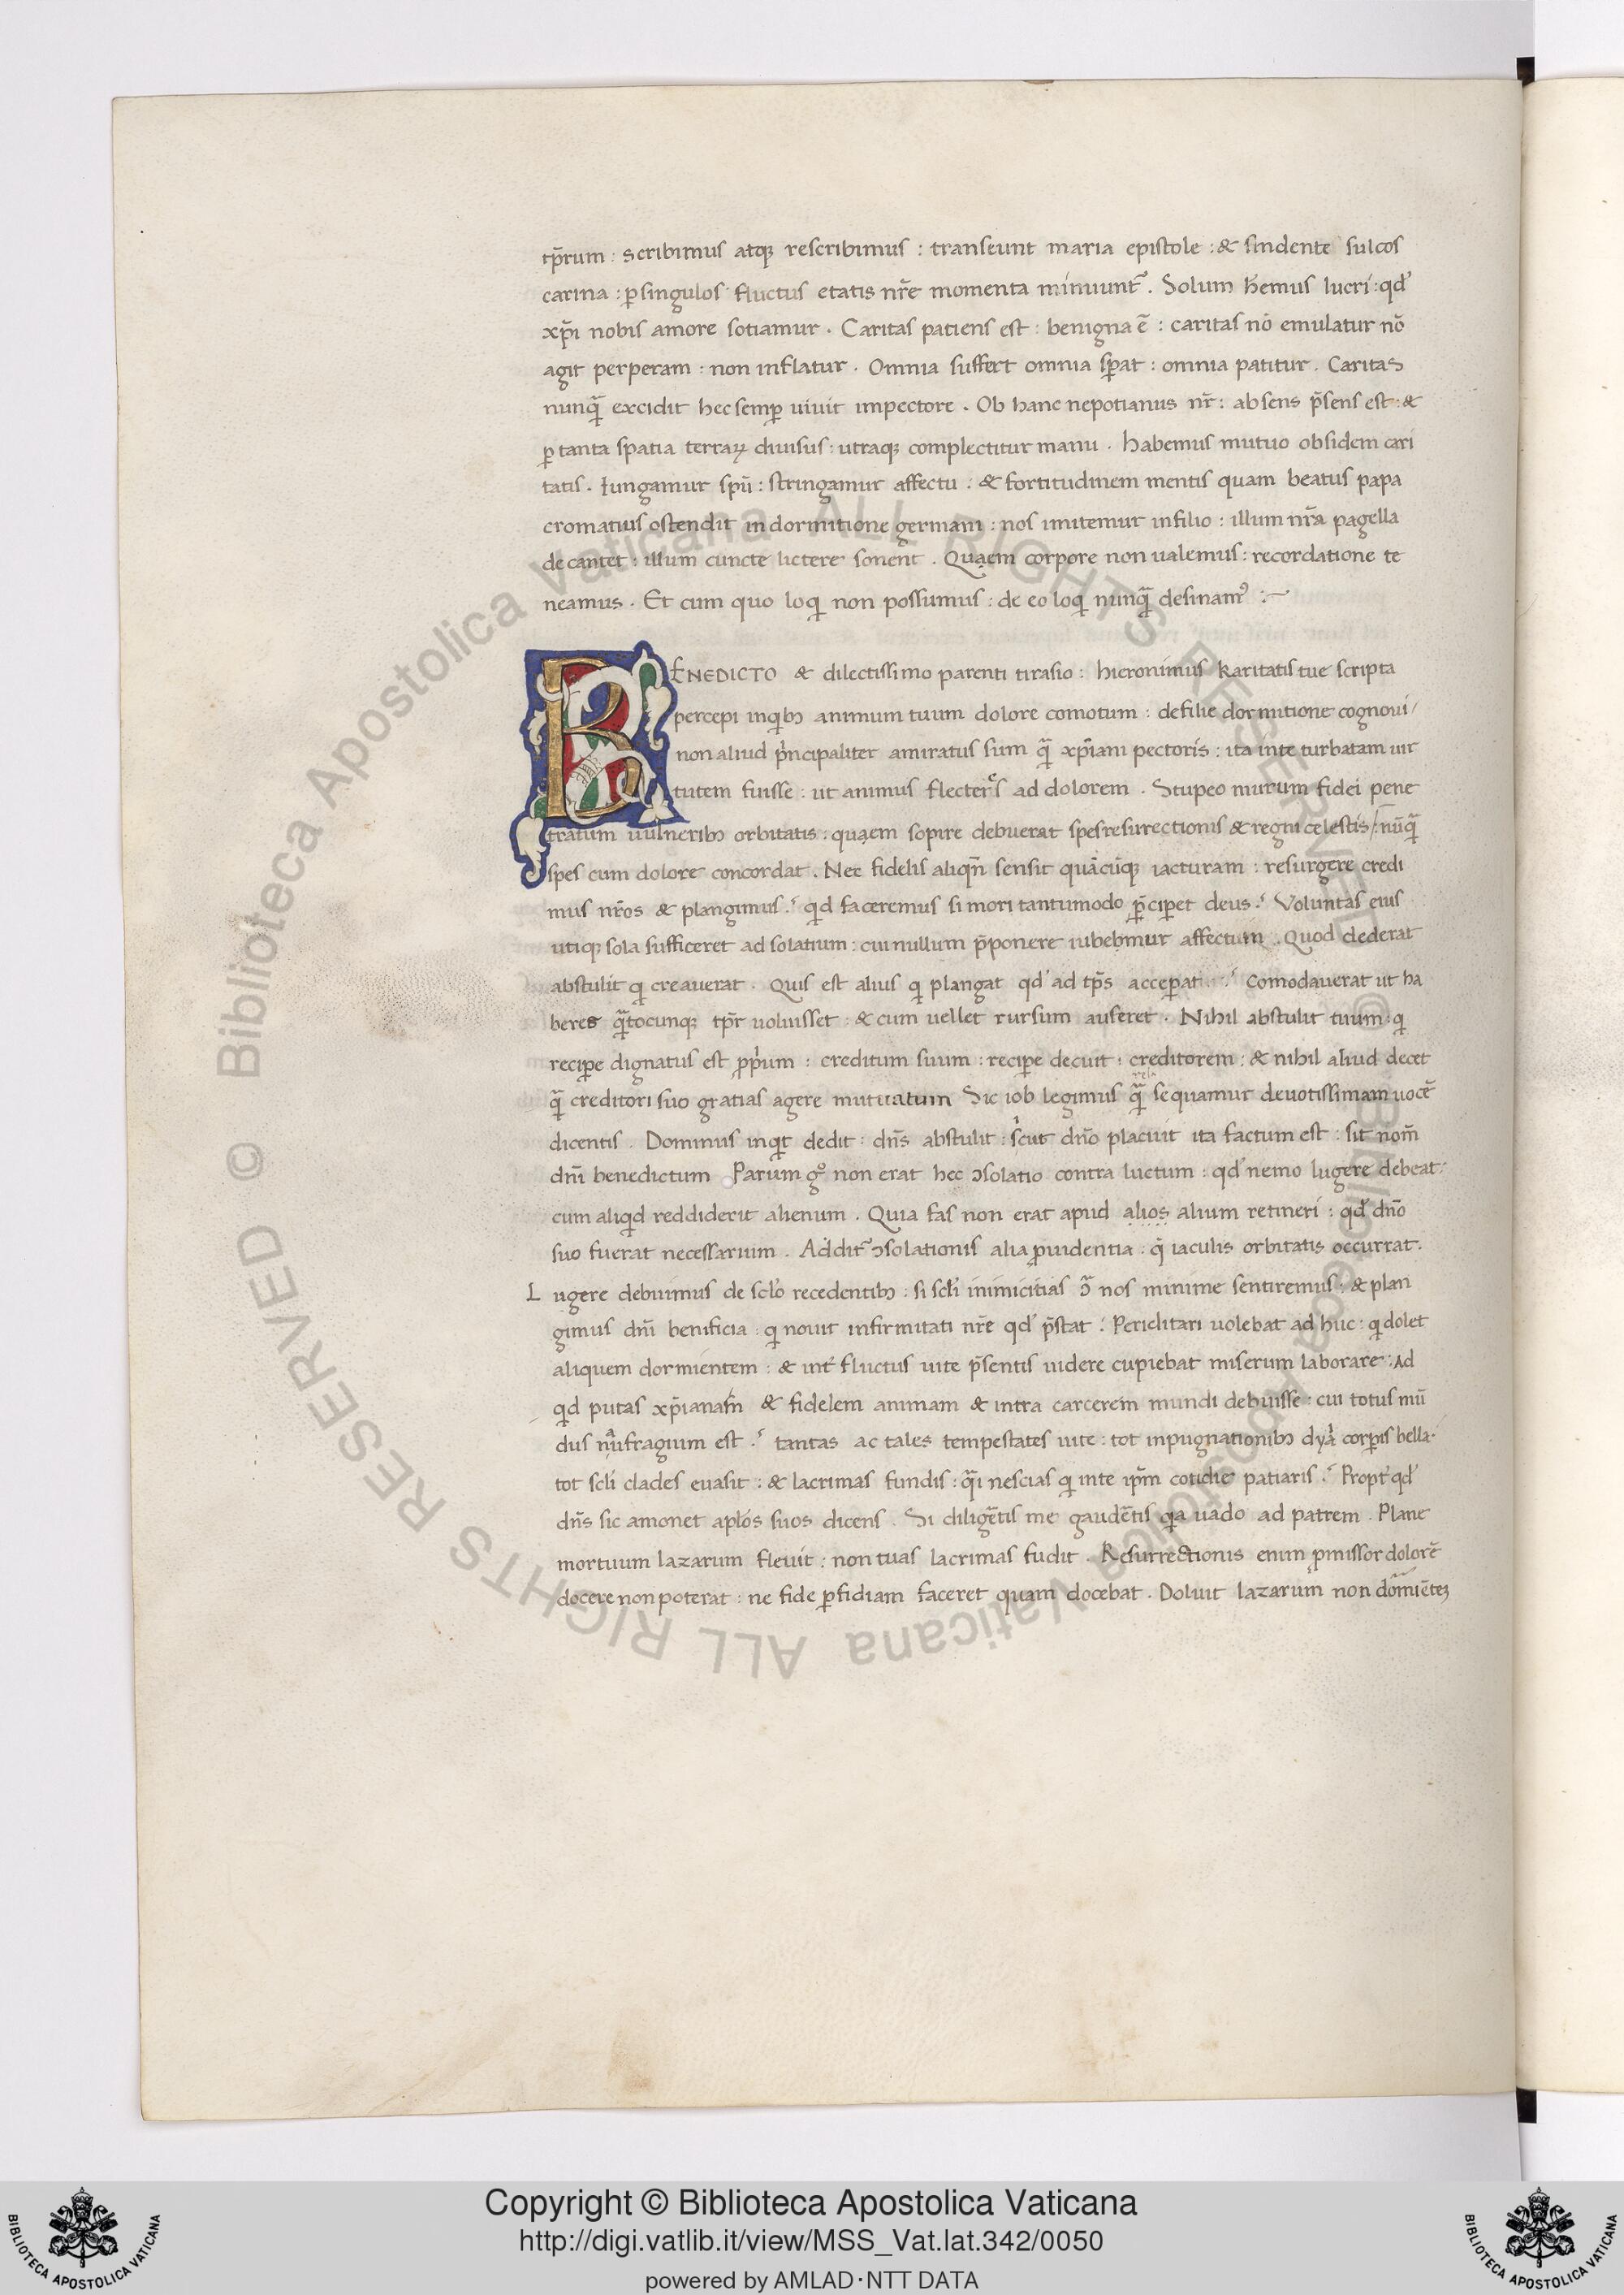 tp̄rum : scribimus atqȝ rescribimus : transeunt maria epistole : & sindente sulcos
carina : ꝑsingulos fluctus etatis nr̄e momenta minuunt᷑ . Solum hēmus lucri : qd̓
xp̄i nobis amore sotiamur . Caritas patiens est : benigna ē : caritas nō emulatur nō
agit perperam : non inflatur . Omnia suffert omnia sꝑat : omnia patitur . Caritas
nunq̄ excidit hec semꝑ uiuit impectore . Ob hanc nepotianus nr̄ : absens p̄sens est : &
ꝑ tanta spatia terraꝝ diuisus : utraqȝ complectitur manu . habemus mutuo obsidem cari
tatis . Iungamur spū : stringamur affectu : & fortitudinem mentis quam beatus papa
cromatius ostendit indormitione germani : nos imitemur infilio : illum nr̄a pagella
decantet : illum cuncte lictere sonent . Quạem corpore non ualemus : recordatione te
neamus . Et cum quo loqi non possumus : de eo loqi nunq̄ desinamꝰ :~
BENEDICTO & dilectissimo parenti tirasio : hieronimus karitatis tue scripta
percepi inqibꝫ animum tuum dolore comotum : defilie dormitione cognoui /
non aliud pͥncipaliter amiratus sum q̄ xp̄iani pectoris : ita inte turbatam uir
tutem fuisse : ut animus flecteͤrs ad dolorem . Stupeo murum fidei pene
tratum uulneribꝫ orbitatis : quạem sopire debuerat spes resurectionis & regni celestis / : nūq̄
spes cum dolore concordat . Nec fidelis aliqn̄ sensit quācūqȝ iacturam : resurgere credi
mus nr̄os & plangimus .ˀ qid faceremus si mori tantumodo p̄ciꝑet deus .ˀ Voluntas eius
utiqȝ sola sufficeret ad solatium : cui nullum p̄ponere iubebmur affectum . Quod dederat
abstulit qi creauerat . Quis est alius qi plangat qd̓ ad tp̄s acceꝑat .ˀ Comodauerat ut ha
beres q̄tocunqȝ tp̄r uoluisset : & cum uellet rursum auferet . Nihil abstulit tuum : qi
reciꝑe dignatus est ꝓp̄ium : creditum suum : reciꝑe decuit : creditorem : & nihil aliud decet
q̄ creditori suo gratias agere mutuatum Sic iob legimus q̄ sequamur deuotissimam uocē
dicentis . Dominus inqit dedit : dn̄s abstulit : sicut dn̄o placuit ita factum est : sit nom̄
dn̄i benedictum Parum gͦ non erat hec ɔsolatio contra luctum : qd̓ nemo lugere debeat :
cum aliqid reddiderit alienum . Quia fas non erat apud alios alium retineri : qd̓ dn̄o
suo fuerat necessarium . Addit᷑ ɔsolationis alia ꝓuidentia : qͥ iaculis orbitatis occurrat .
Lugere debuimus de scl̄o recedentibꝫ : si scl̄i inimicitias ɔ̄ nos minime sentiremus : & plan
gimus dn̄i benificia : qi nouit infirmitati nr̄e qd̓ p̄stat : Periclitari uolebat ad huc : qi dolet
aliquem dormientem : & int̓ fluctus uite p̄sentis uidere cupiebat miserum laborare : Ad
qid putas xp̄ianam̄ & fidelem animam & intra carcerem mundi debuisse : cui totus mū
dus nͣufragium est .ˀ tantas ac tales tempestates uite : tot inpugnationibꝫ dyͣ corꝑis bella .
tot scl̄i clades euasit : & lacrimas fundis : qͣi nescias qi inte ip̄m cotidie patiaris .ˀ Propt̓ qd̓
dn̄s sic amonet apl̄os suos dicens . Si diligētis me gaudētis qia uado ad patrem . Plane
mortuum lazarum fleuit : non tuas lacrimas fudit . Resurrectionis enim ꝓmissor dolorē
docere non poterat : ne fide ꝑfidiam faceret quam docebat . Doluit lazarum non dōmiēteꝫ
© Biblioteca Apostolica Vaticana ALL RIGHTS RESERVED © Biblioteca Apostolica Vaticana ALL RIGHTS RESERVED
Copyright © Biblioteca Apostolica Vaticana
http://digi.vatlib.it/view/MSS_Vat.lat.342/0050
powered by AMLAD·NTT DATA
BIBLIOTECA APOSTOLICA VATICANA
BIBLIOTECA APOSTOLICA VATICANA